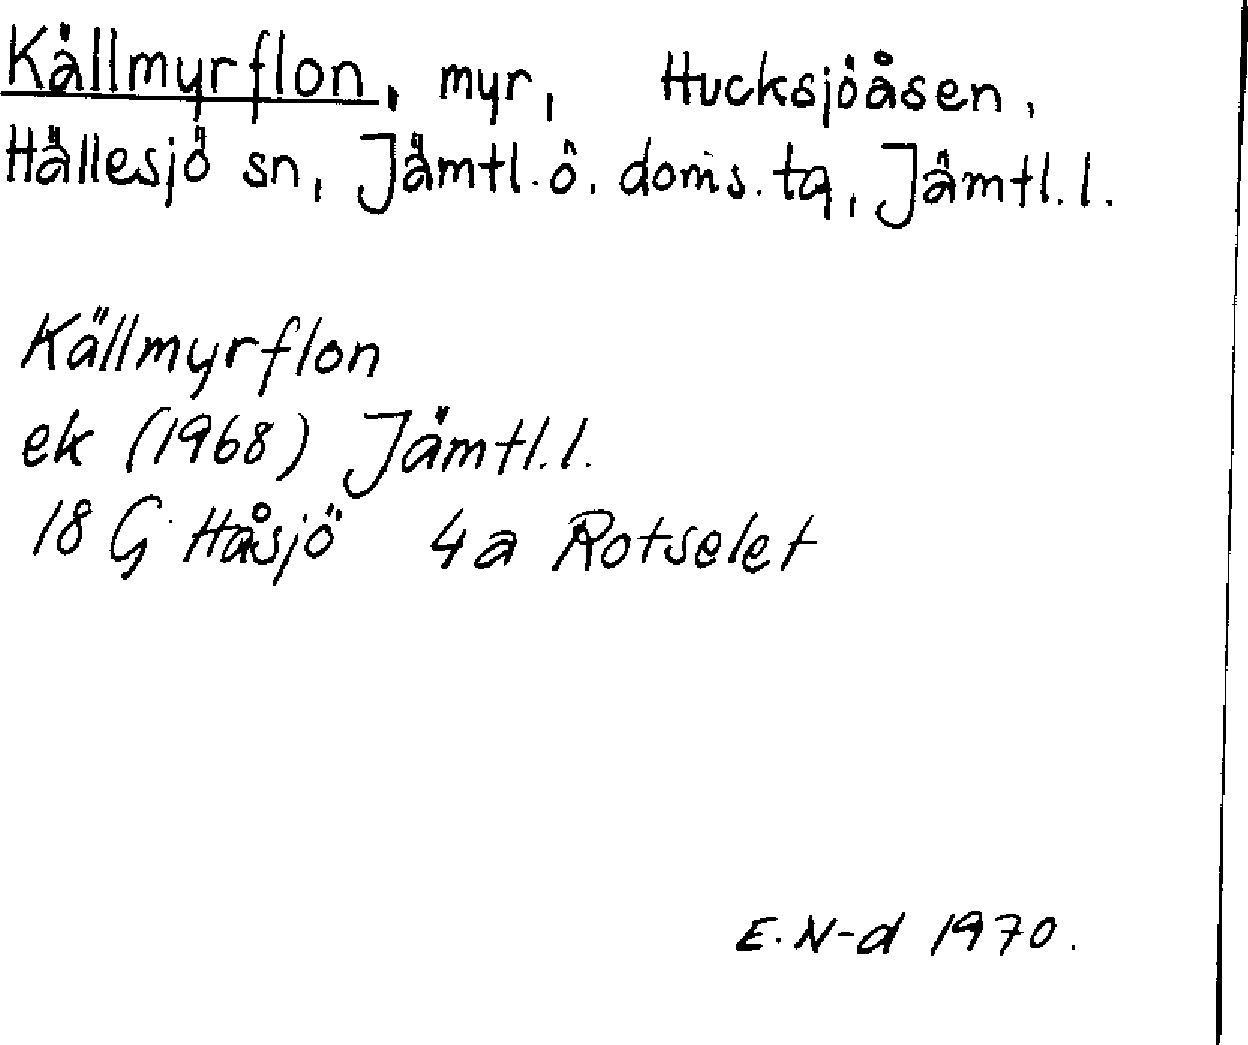 Källmyrflon, myr, Hucksjöåsen,
Hällesjö sn, Jämtl. ö. doms. tg, Jämtl. l.
Källmyrflon
ek (1968) Jämtl. l.
18 G Håsjö 4a Rotselet
E. N-d 1970.